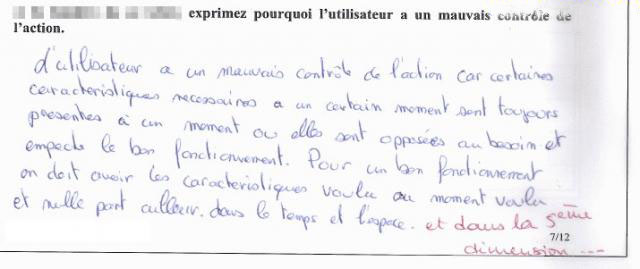 exprimez pourquoi l'utilisateur a un mauvais contrôle de
l'action.
L'utilisateur a un mauvais contrôle de l'action car certaines
caracteristiques necessaires a un certain moment sont toujours
presentes à un moment ou elles sont opposées au besoin et
empeche le bon fonctionnement. Pour un bon fonctionnement
on doit avoir les caracteristiques voulu au moment voulu
et nulle part ailleur. dans le temps et l'espace. et dans la 5eme
7/12
dimension ...